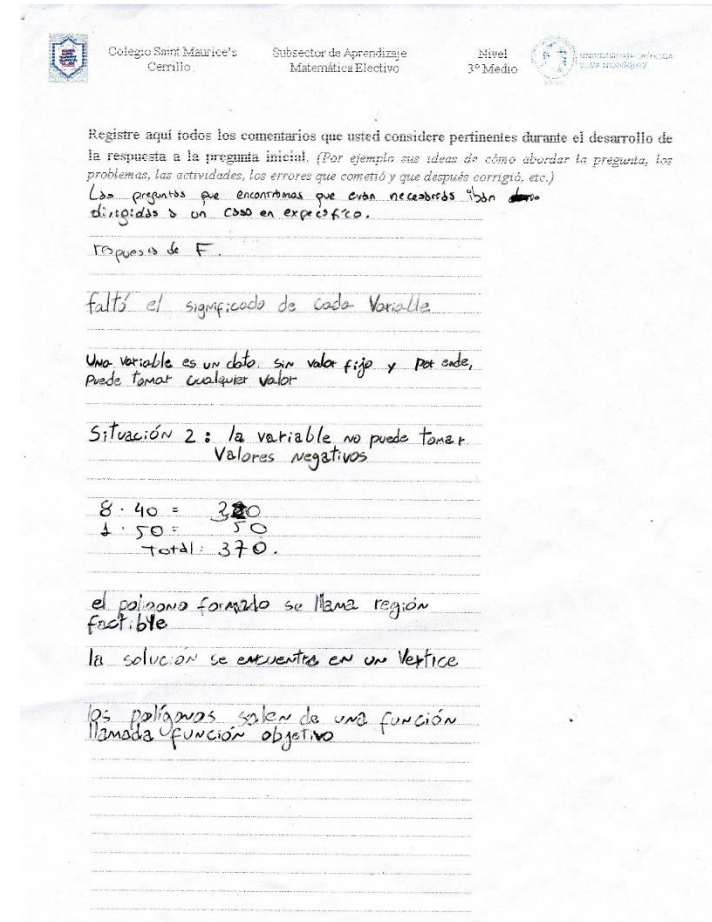 Colegio Saint Maurice's
Cerrillo
Subsector de Aprendizaje
Matemática Electivo
Nivel
3º Medio
Registre aquí todos los comentarios que usted considere pertinentes durante el desarrollo de
la respuesta a la pregunta inicial. (Por ejemplo sus ideas de cómo abordar la pregunta, los
problemas, las actividades, los errores que cometió y que después corrigió, etc.)
Las preguntas que encontramos que eran necesarias iban
dirigidas a un caso en expecifico.
respuesta de F.
faltó el significado de cada Variable
Una variable es un dato sin valor fijo y por ende,
puede tomar cualquier valor
Situación 2 : la variable no puede tomar
Valores negativos
8 · 40 = 320
1 · 50 = 50
Total: 370.
el poligono formado se llama región
factible
la solución se encuentra en un Vertice
los polígonos salen de una función
llamada función objetivo